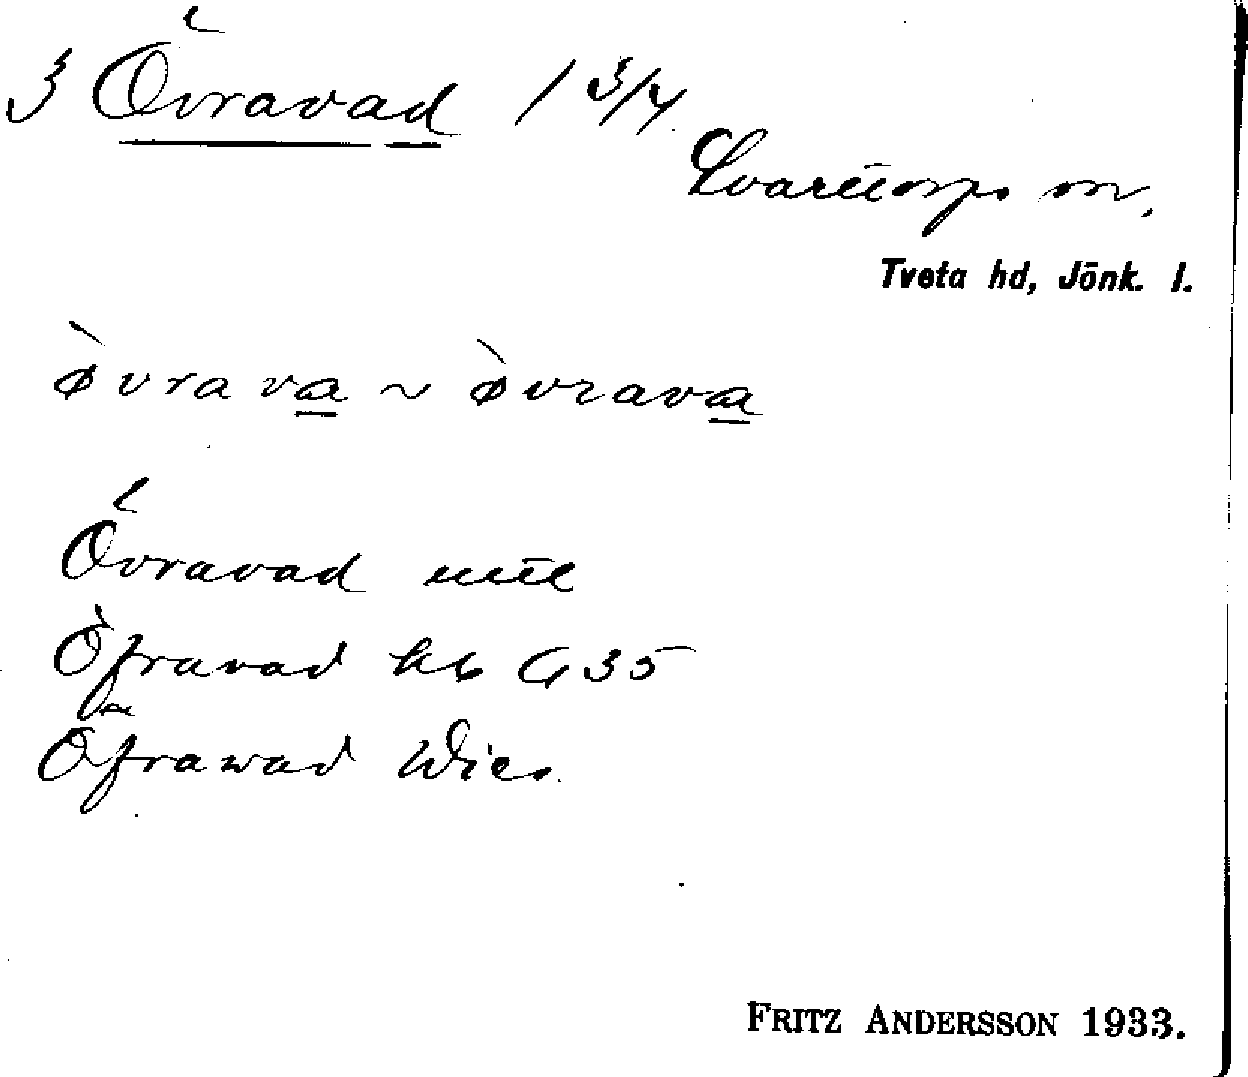 3 Övravad 1 3/4
Svarttorps sn,
Tveta hd, Jönk. l.
ø̀vrava ~ ø̀vrava
Övravad
Öfravad kb G 35
Öfrawad Wies.
FRITZ ANDERSSON 1933.